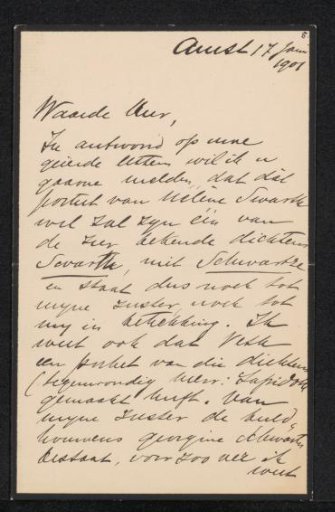 8
Amst 17 Jan
1901
Waarde Heer,
In antwoord op uwe
geëerde letteren wil ik u
gaarne melden, dat dit
portret van Hélène Swarth
wel zal zijn één van
de zeer bekende dichteres
Swarth, niet Schwartze
en staat dus noch tot
mijne zuster noch tot
mij in betrekking. Ik
weet ook dat Veth
een portret van die dichteres
(tegenwoordig Mevr. Lapidoth
gemaakt heeft. Van
mijne zuster de beeld
houweres Georgine Schwartze
bestaat, voor zoo ver ik
weet